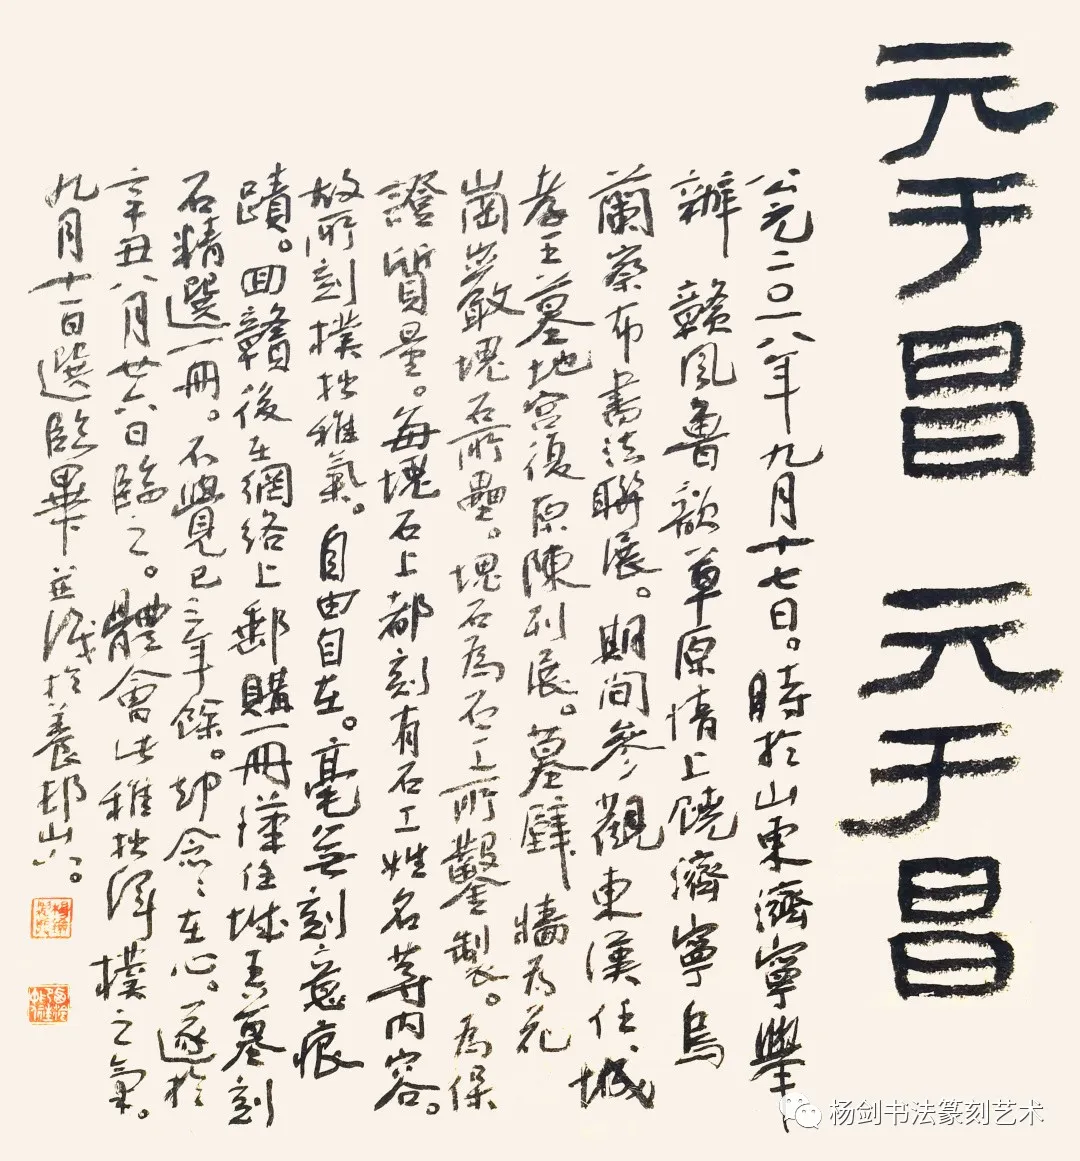 元于昌 元于昌
公元二〇一八年九月十七日。時於山東濟寧舉
辦 贛風魯韻草原情上饒濟寧烏
蘭察布書法聯展。期间參觀東漢任城
孝王墓地宫復原陳列展。墓壁 墻为花
崗岩敢塊石所壘。塊石為石工所鑿製。為保
證質量。每塊石上都刻有石工姓名等内容。
故所刻樸拙稚氣。自由自在。毫无刻意痕
蹟。回贛後在網络上郵購一冊漢任城王墓刻
石精選一冊。不覺已三年餘。却念念在心。遂於
辛丑八月廿六日臨之。體會其稚拙渾樸之氣。
九月十一日選臨畢并識於養邨山人。
杨剑书法篆刻艺术